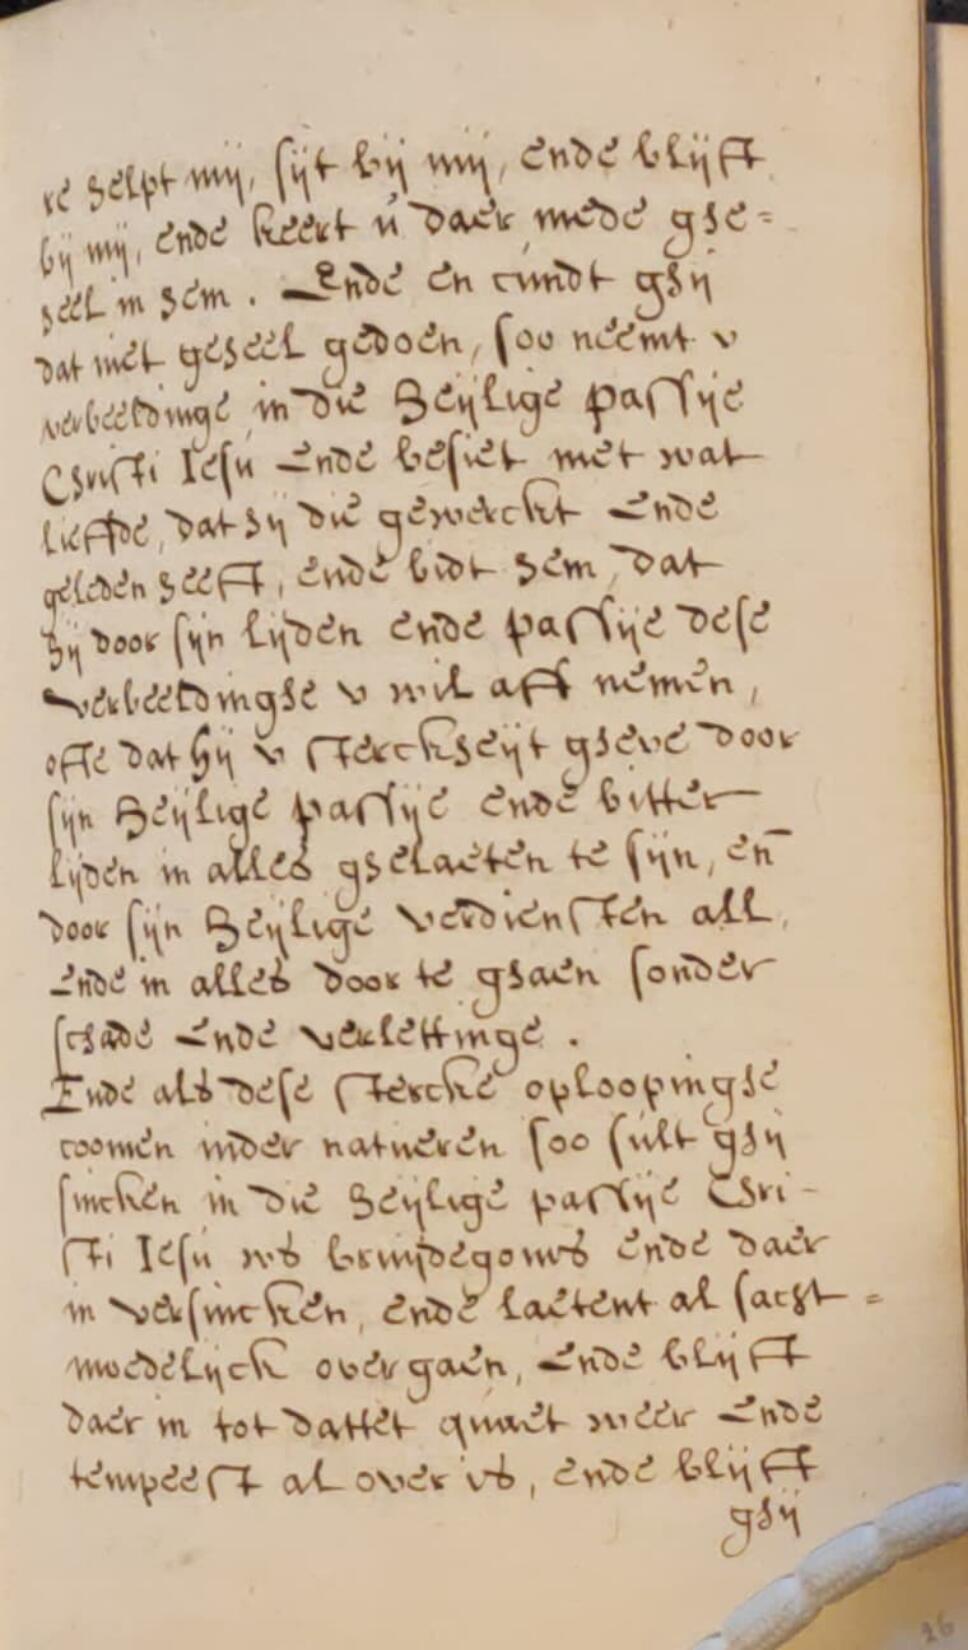 re helpt mij, sijt bij mij, ende blijft
bij mij, ende keert ú daer mede ghe=
heel in hem. Ende en cúndt ghij
dat niet geheel gedoen, soo neemt v
verbeeldinge in die Heijlige passije
Christi Iesú Ende besiet met wat
lieffde, dat hij die gewerckt Ende
geleden heeft, ende bidt hem, dat
hij door sijn lijden ende passije dese
verbeeldinghe v wil aff nemen,
offe dat hij v sterckheijt gheve door
sijn Heijlige passije ende bitter
lijden in alles ghelaeten te sijn, en̄
door sijn Heijlige verdiensten all,
Ende in alles door te ghaen sonder
schade Ende verlettinge.
Ende als dese stercke oploopinghe
coomen inder natueren soo súlt ghij
sincken in die Heijlige passije Chri-
sti Iesú ws bruijdegoms ende daer
in versincken, ende laetent al sacht=
moedelijck over gaen, Ende blijft
daer in tot dattet quaet weer Ende
tempeest al over is, ende blijft
ghij
26